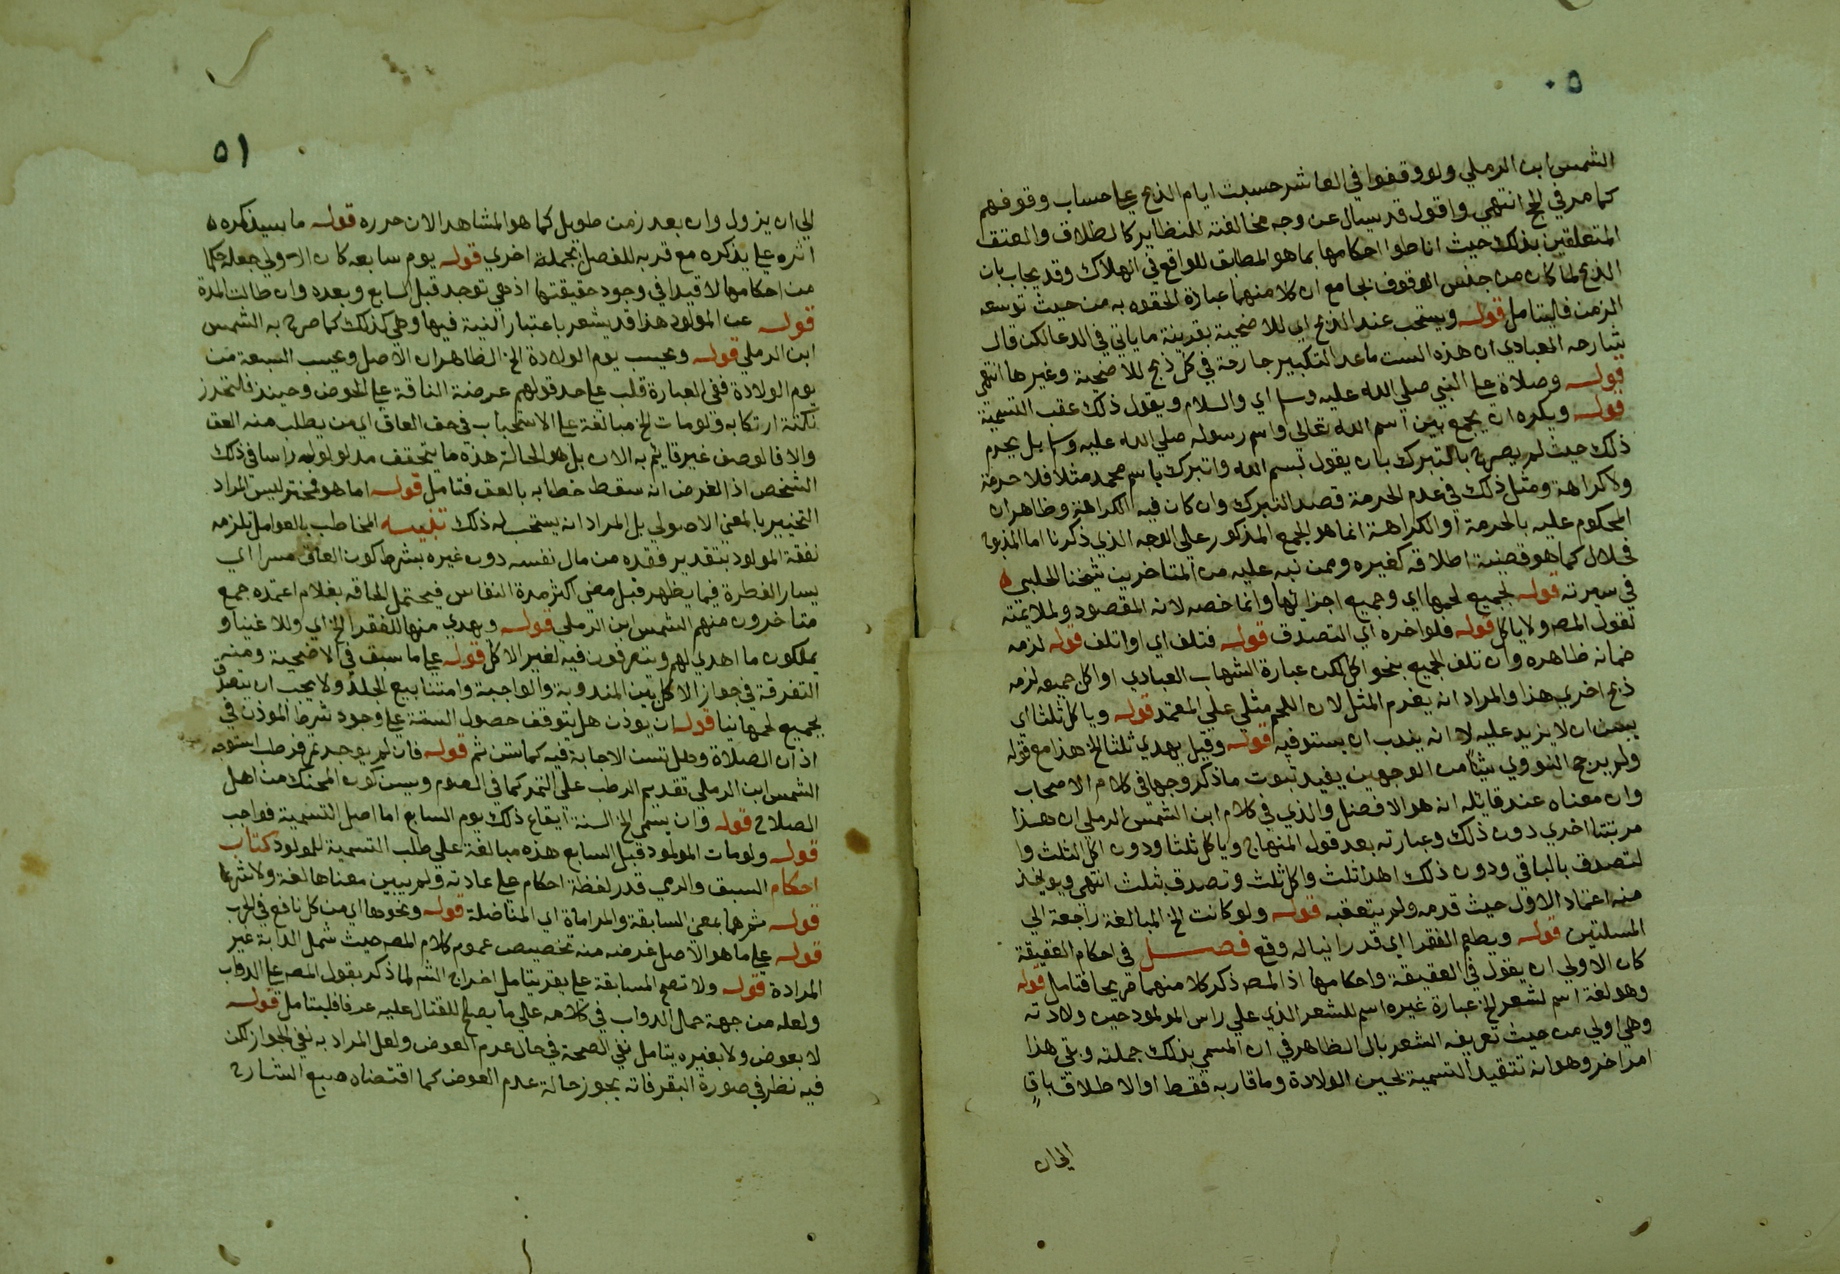 ٥٠
الشمس ابن الرملي ولو وقفوا في العاشر حسبت ايام الذبح علي حساب وقوفهم
كما مر في الحج انتهي واقول قد يسال عن وجه مخالفته للنظاير كالطلاق والعتق
المتعلقين بذلك حيث اناطوا احكامها بما هو المطابق للواقع في الهلاك وقد يجاب بان
الذبح لما كان من جنس الوقوف بجامع ان كلا منهما عبادة الحقوه به من حيث توسعه
الزمن فليتامل قوله ويستحب عند الذبح اي للاضحية بقرينة ما ياتي في الدعا لكن قال
شارحه العبادي ان هذه الست ما عد التكبير جارحة في كل ذبح للاضحية وغيرها انتهي
قوله وصلاة علي النبي صلي الله عليه وسلم اي والسلام ويقول ذلك عقب التسمية
قوله ويكره ان يجمع بين اسم الله تعالي واسم رسوله صلي الله عليه وسلم بل يحرم
ذلك حيث لم يصرح بالتبرك بان يقول بسم الله واتبرك باسم محمد مثلا فلا حرمة
ولا كراهة ومثل ذلك في عدم الحرمة قصد التبرك وان كان فيه الكراهة وظاهر ان
المحكوم عليه بالحرمة او الكراهة انما هو الجمع المذكور علي الوجه الذي ذكرنا اما المذبوح
فحلال كما هو قضية اطلاقه كغيره وممن نبه عليه من المتاخرين شيخنا الحلبي
في سيرته قوله لجميع لحمها اي وجميع اجزائها وانما خصه لانه المقصود ولملايمته
لقول المص ولا ياكل قوله فلو اخره اي التصدق قوله فتلف اي او اتلف قوله لزمه
ضمانه ظاهره وان تلف الجميع بنحو اكل لكن عبارة الشهاب العبادي او اكل جميعه لزمه
ذبح اخري هذا والمراد انه يغرم المثل لان اللحم مثلي علي المعتمد قوله وياكل ثلثا اي
يسن ان لا يزيد عليه لا انه يندب ان يستوفيه قوله وقيل يهدي ثلثا الخ هذا مع قوله
ولم يرجح النووي شيئا من الوجهين يفيد ثبوت ما ذكر وجها في كلام الاصحاب
وان معناه عند قايله انه هو الافضل والذي في كلام ابن الشمس الرملي ان هذا
مرتبتا اخري دون ذلك وعبارته بعد قول المنهاج وياكل ثلثا ودون اكل الثلث وا
لتصدق بالباقي ودون ذلك اهدا ثلث واكل ثلث وتصدق بثلث انتهي ويوخذ
منه اعتماد الاول حيث قدمه ولم يتعقبه قوله ولو كانت الخ المبالغة راجعة الي
المسلتين قوله ويطعم الفقرا اي قدرا نيا له وقع فصل في احكام العقيقة
كان الاولي ان يقول في العقيقة واحكامها اذ المص ذكر كلا منهما صريحا فتامل قوله
وهو لغة اسم لشعر الخ عبارة غيره اسم للشعر الذي علي راس المولود حين ولادته
وهي اولي من حيث تعريف الشعر بال الظاهر في ان المسمي بذلك جملته وبقي هذا
امر اخر وهو انه تتقيد التسمية بحين الولادة وما قاربه فقط او الاطلاق باق
الي ان
٥١
الي ان يزول وان بعد زمن طويل كما هو المشاهد الان حرره قوله ما سيذكره
اثره علي يذكره مع قربه للفصل بجملة اخري قوله يوم سابعه كان الاولي جعله حكما
من احكامها لا قيدا في وجود حقيقتها اذ هي توجد قبل السابع وبعده وان طالت المدة
قوله عن المولود هذا قد يشعر باعتبار النية فيها وهي كذلك كما صرح به الشمس
ابن الرملي قوله ويحسب يوم الولادة الخ الظاهر ان الاصل ويحسب السبعة من
يوم الولادة ففي العبارة قلب علي حد قولهم عرضة الناقة علي الحوض وحينئذ فلتحرر
نكتة ارتكابه ولو مات الخ مبالغة علي الاستحباب في حق العاق اي من يطلب منه العق
والا فالوصف غير قايم به الان بل هو الحالة هذه ما يتحقق مدلوله راسا في ذلك
الشخص اذ الغرض انه سقط خطابه بالعق فتامل قوله اما هو فمخير ليس المراد
التخيير بالمعني الاصولي بل المراد انه يستحب له ذلك تنبيه المخاطب بالعق من تلزمه
نفقة المولود بتقدير فقده من مال نفسه دون غيره بشرط كون العاق مسرا اي
يسار الفطرة فيما يظهر قبل مضي اكثر مدة النفاس فيحتمل الحاقه بغلام اعتمده جمع
متاخرون منهم الشمس ابن الرملي قوله ويهدي منها للفقرا الخ اي وللاغنيا و
يملكون ما اهدي لهم ويتصرفون فيه لغير الاكل قوله علي ما سبق في الاضحية ومنه
التفرقة في جواز الاكل بين المندوبة والواجبة وامتنا بيع الجلد ولا يجب ان يتصدق
بجميع لحمها نيا قوله ان يوذن هل يتوقف حصول السنة علي وجود شرط الموذن في
اذان الصلاة وهل تسن الاجابة فيه كما تسن ثم قوله فان لم يوجد تمر فرطب استوجه
الشمس ابن الرملي تقديم الرطب علي التمر كما في الصوم ويسن كون المحنك من اهل
الصلاح قوله وان يسمي الخ السنة ايقاع ذلك يوم السابع اما اصل التسمية فواجب
قوله ولو مات المولود قبل السابع هذه مبالغة علي طلب التسمية للمولود كتاب
احكام السبق والرمي قدر لفظة احكام علي عادته ولم يبين معناها لغة ولا شرعا
قوله شرهما بمعني المسابقة والمراماة اي المناضلة قوله ونحوها اي من كل نافع في الحرب
قوله علي ما هو الاصل غرضه منه تخصيص عموم كلام المص حيث شمل الدابة غير
المرادة قوله ولا تصح المسابقة علي بقر يتامل اخراج الشم لما ذكر بقول المص علي الدواب
ولعله من جهة حمل الدواب في كلامه علي ما يصلح للقتال عليه عرفا فليتامل قوله
لا بعوض ولا بغيره يتامل نفي الصحة في حال عدم العوض ولعل المراد به نفي الجواز لكن
فيه نظر في صورة البقر فانه يجوز حالة عدم العوض كما اقتضاه صيع الشارح